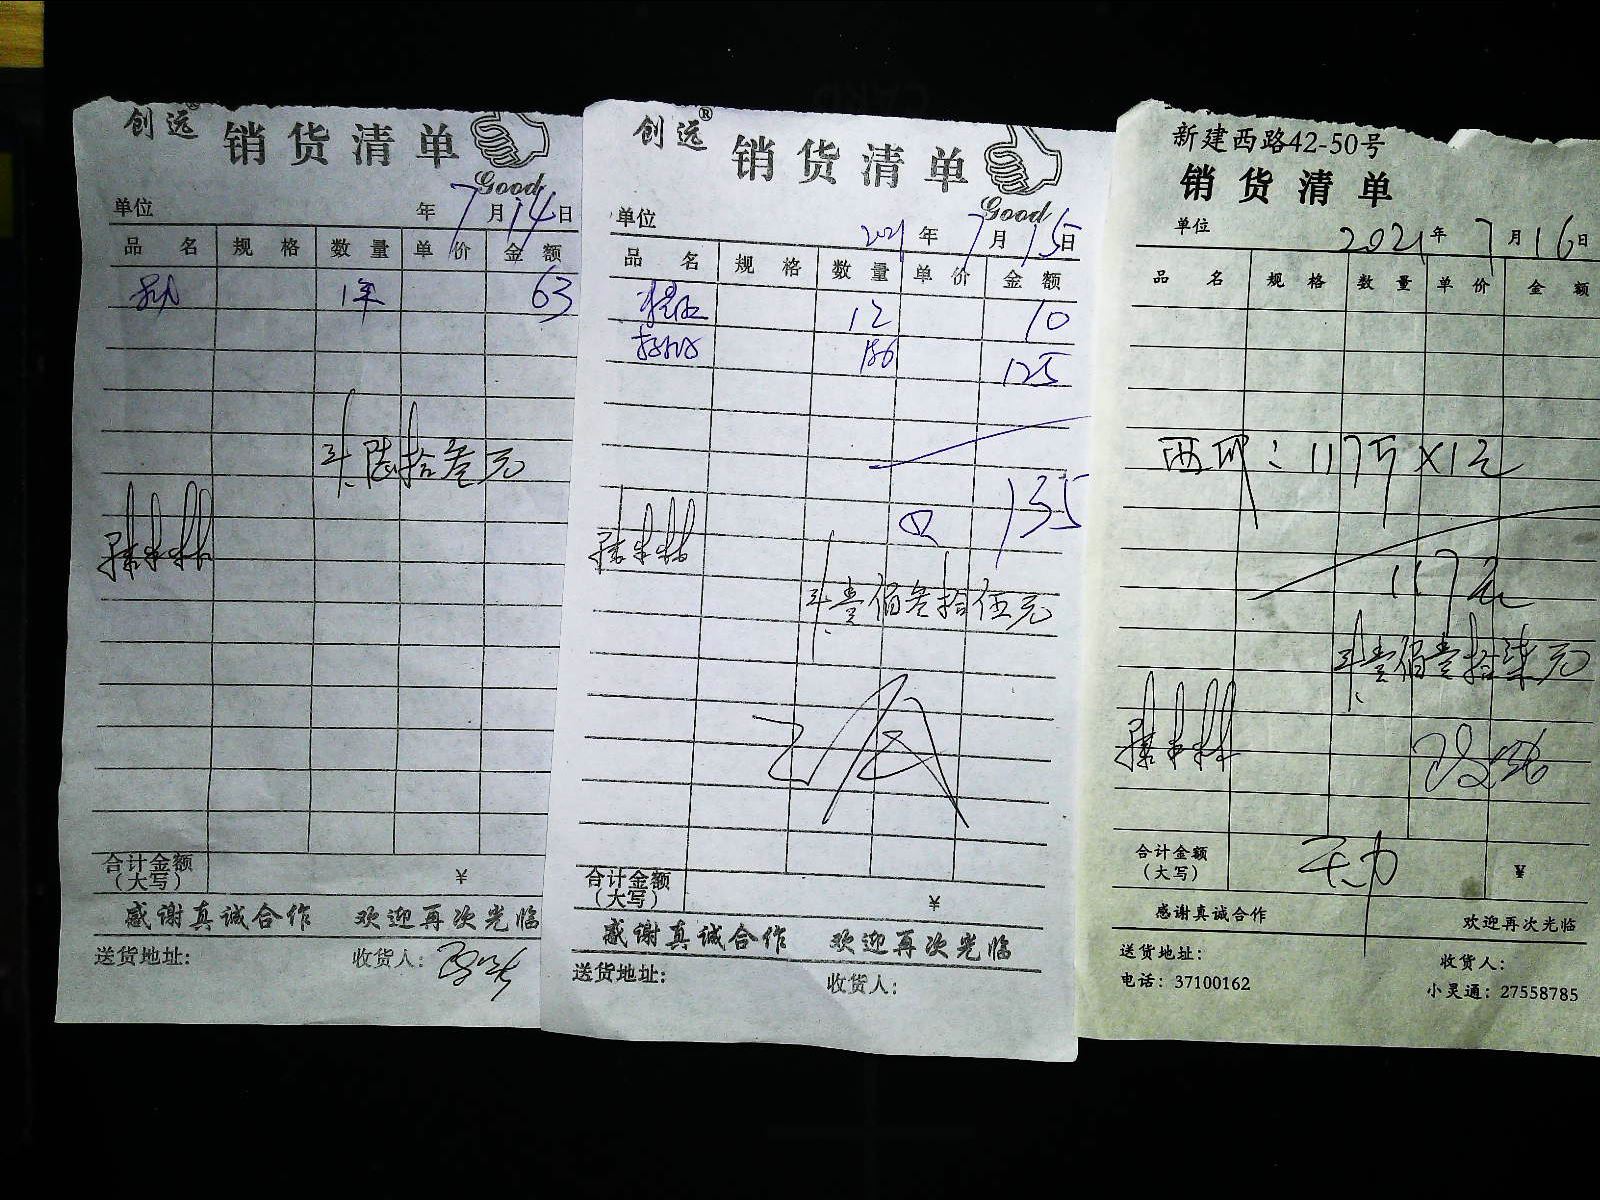 创远®
销货清单
Good
单位 年 7 月 14 日
品名 规格 数量 单价 金额
63
陆拾叁元
合计金额
(大写) ¥
感谢真诚合作 欢迎再次光临
送货地址: 收货人:
创远®
销货清单
Good
单位 2021 年 7 月 15 日
品名 规格 数量 单价 金额
12 10
186 125
135
壹佰叁拾伍元
合计金额
(大写) ¥
感谢真诚合作 欢迎再次光临
送货地址: 收货人:
新建西路42-50号
销货清单
单位 2021 年 7 月 16 日
品名 规格 数量 单价 金额
117斤×1元
117元
壹佰壹拾柒元
合计金额
(大写) ¥
感谢真诚合作 欢迎再次光临
送货地址: 收货人:
电话: 37100162 小灵通: 27558785